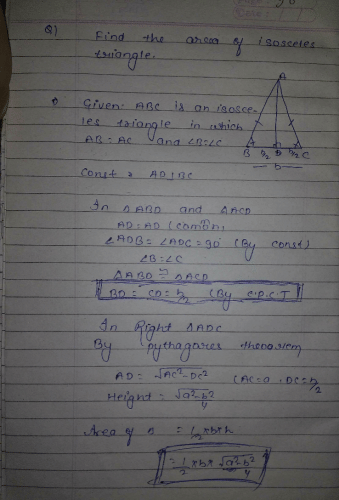 Q) Find the area of isosceles
triangle.
A
Given: ABC is an isosce-
les triangle in which
AB = AC and ∠B = ∠C
B b/2 D b/2 C
b
Const: AD⊥BC
In △ABD and △ACD
AD = AD (common)
∠ADB = ∠ADC = 90° (By const)
∠B = ∠C
△ABD ≅ △ACD
BD = CD = b/2 (By C.P.C.T
In Right △ADC
By pythagores theoram
AD = √AC²-DC² (AC=a, DC=b/2
Height = √a²-b²/4
Area of △ = 1/2 × b × h
= 1/2 × b × √a²-b²/4